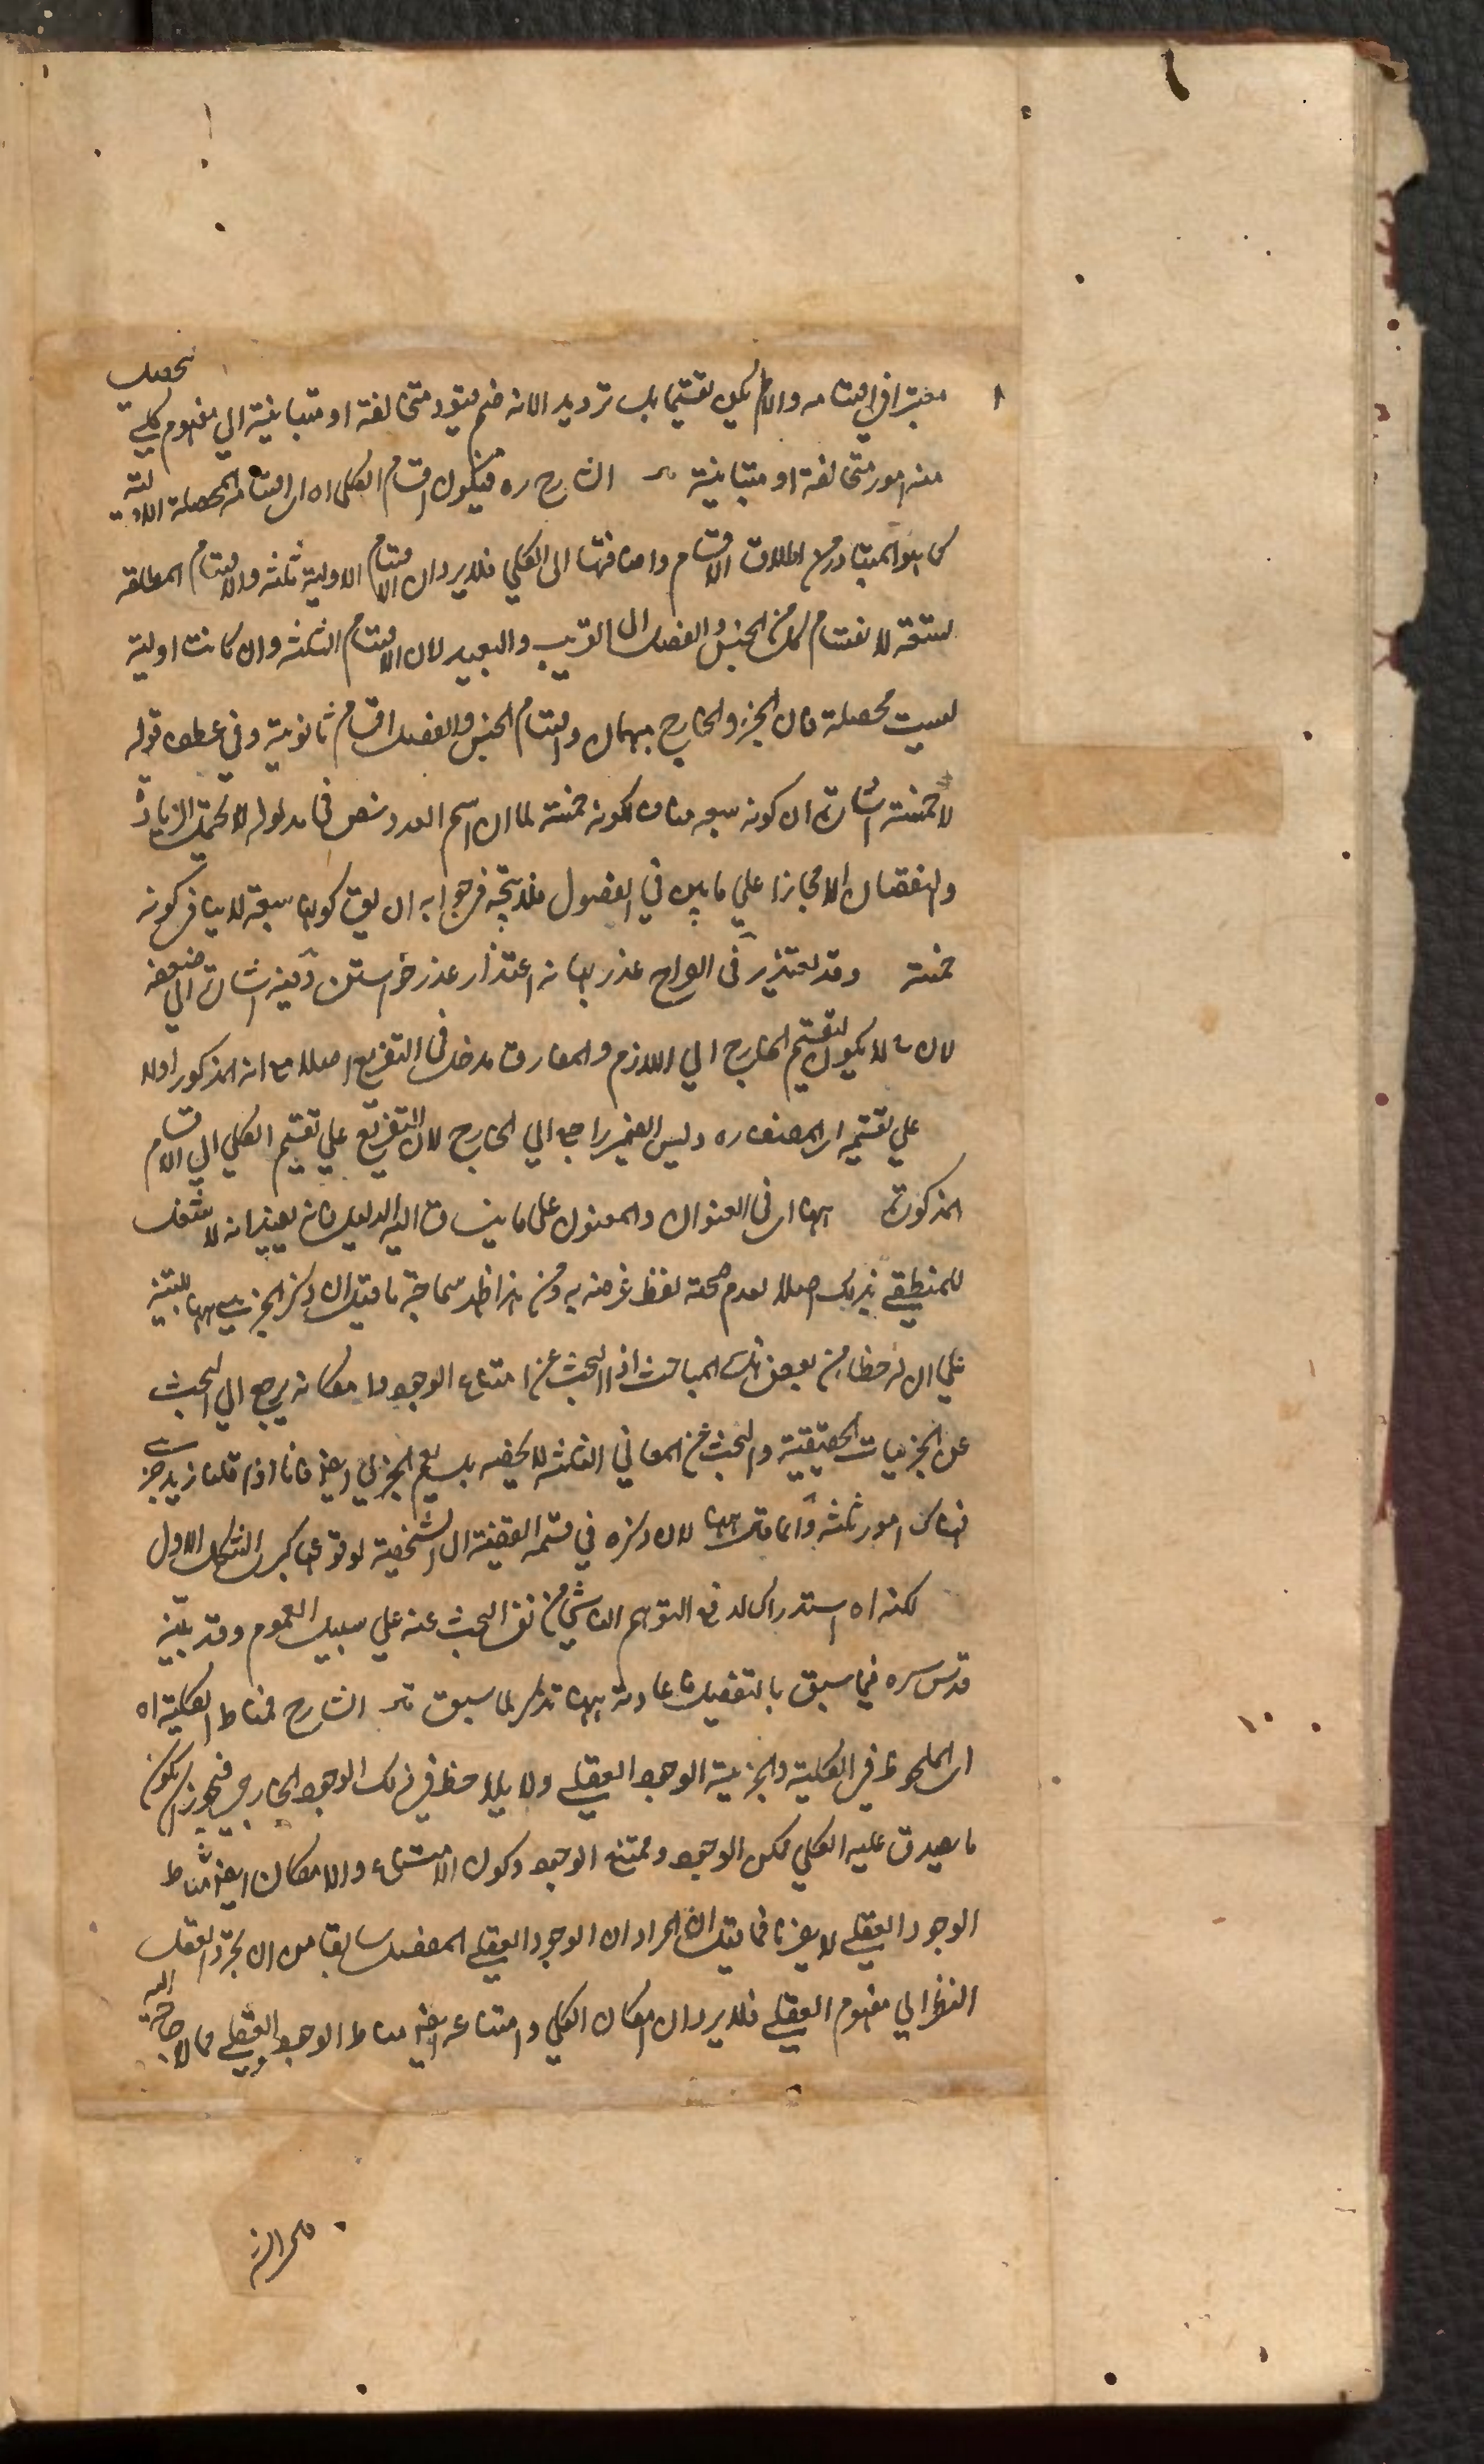 معتبرا في اقسامه والا لم يكن تقسيما بل ترديد الانه ضم قيود متخالفة او متباينة الي مفهوم كلي يحصل
منه امور متخالفة او متباينة قـ الشارح ره فيكون اقسام الكلي اه اي اقسامه المحصلة الاولية
كما هو المتبادر من اطلاق الاقسام واضافتها الى الكلي فلا يرد ان الاقسام الاولية ثلثة والاقسام المطلقة
سبعة لانقسام كل من الجنس والفصل الى القريب والبعيد لان الاقسام الثلثة وان كانت اولية
ليست محصلة فان الجزء والخارج مبهمان واقسام الجنس والفصل اقسام ثانوية وفي عطف قوله
لا خمسة اشارة ان كونه سبعة مناف لكونه خمسة لما ان اسم العدد نص في مدلوله لا يحتمل الزيادة
والنقصان الا مجازا علي ما بين في الفصول فلا يتجه في جوابه ان يق كونها سبعة لا ينافي كونه
خمسة وقد يعتذر في الصراح عذر بهانه اعتذار عذر خواستن وفيه اشارة الي ضعفه
لان ح لا يكون لتقسيم الخارج الي اللازم والمفارق مدخل في التفريع اصلا مع انه المذكور اولا
علي تقسيم اي المصنف ره وليس الضمير راجعا الي الخارج لان التفريع علي تقسيم الكلي الي الاقسام
المذكورة ههنا اي في العنوان والمعنون على ما ينساق اليه الدليل فانه يفيد انه لا شغل
للمنطقي بذلك اصلا لعدم صحة لفظ غرضه به ومن هذا ظهر سماجة ما قيل ان ذكر الجزئي ههنا للتنبيه
علي ان له حظا من بعض تلك المباحث اذ البحث عن امتناع الوجود وامكانه يرجع الي البحث
عن الجزئيات الحقيقية والبحث عن المعاني الثلثة لا يخصه بل يعم الجزئي ايضا فانا اذا قلنا زيد جزئي
فهناك امور ثلثة وانما قال ههنا لان ذكره في قسمة القضية الى الشخصية لوقوعها كبرى الشكل الاول
لكنه اه استدراك لدفع التوهم الناشي من نفي البحث عنه علي سبيل العموم وقد بينه
قدس سره فيما سبق بالتفصيل فاعادته ههنا تذكر لما سبق قـ الشارح فمناط الكلية اه
اي الملحوظ في الكلية والجزئية الوجود العقلي ولا يلاحظ في ذلك الوجود الخارجي فيجوز ان يكون
ما يصدق عليه الكلي ممكن الوجود وممتنع الوجود وكون الامتناع والامكان ايضا مناط
الوجود العقلي لا يضرنا فما قيل ان المراد ان الوجود العقلي المفصل سابقا من ان مجرد العقل
النظر الي مفهوم العقلي فلا يرد ان امكان الكلي وامتناعه ايضا مناط الوجود العقلي مما لا حاجة اليه